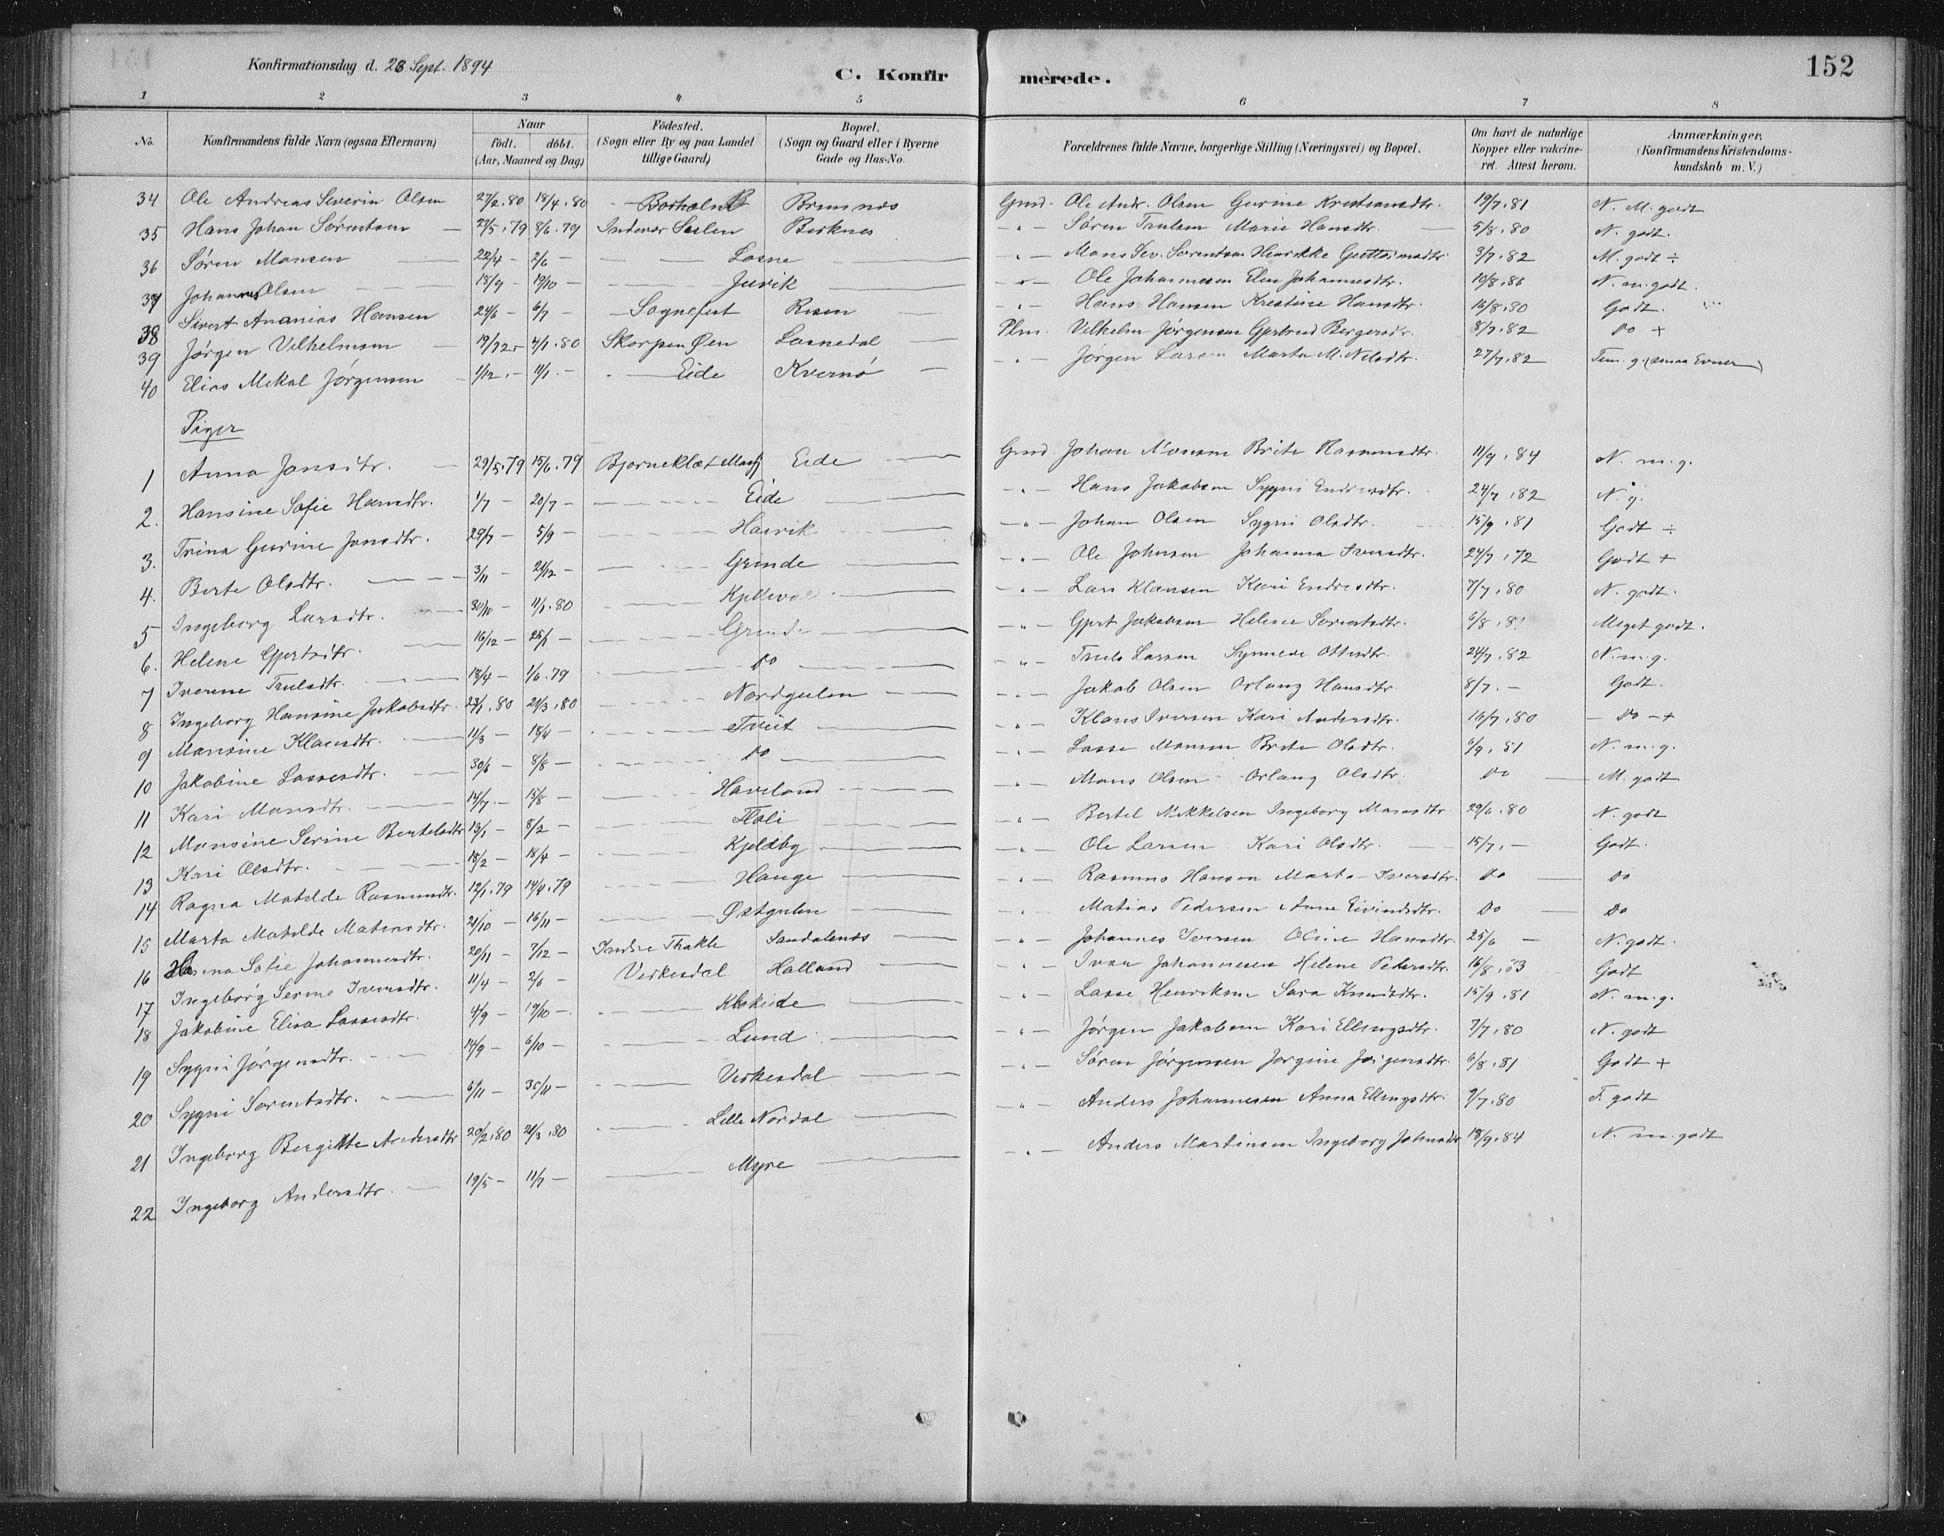 Konfirmationsdag d. 23 Sept. 1894 C. Konfir merede. 152
1 2 3 4 5 6 7 8
No. Konfirmandens fulde Navn (ogsaa Efternavn) Naar født. døbt. (Aar, Maaned og Dag) Fødested. (Sogn eller By og paa Landet tillige Gaard) Bopæl. (Sogn og Gaard eller i Byerne Gade og Hus-No. Forældrenes fulde Navne, borgerlige Stilling (Næringsvei) og Bopæl. Om havt de naturlige Kopper eller vakcineret. Attest herom. Anmærkninger. (Konfirmandens Kristendomskundskab m. V.)
34 Ole Andreas Severin Olsen 27/2.80 18/4.80 Brennes Gmd. Ole Andr. Olsen Gurine Kristiansdtr. 19/7.81 N. M. godt
35 Hans Johan Sørentsen — 27/5.79 8/6.79 Indevær Birknes - " - Søren Trulsen Marie Hansdtr. — 5/8.80 N. godt.
36 Søren Monsen — 22/4 — 2/6 — Losne - " - Mons Sev. Sørentsen 3/7.82 M. godt ÷
37 Johannes Olsen — 15/9 — 19/10 — Juvik - " - Ole Johannesen Elen Johannesdtr. 10/8.86 N. m. godt.
38 Sivert Ananias Hansen 24/6 — 6/7 — Sognefest Risen - " - Hans Hansen Kristine Hansdtr. 16/8.80 Godt.
39 Jørgen Vilhelmsen — 19/12 - 4/1.80 Skorpen Øen Losnedal — Plm. Vilhelm Jørgensen Gjertrud Bergersdr. 8/7.82 Do +
40 Elias Mikal Jørgensen 1/12.- 11/1 - - " - Eide Kvernø — - " - Jørgen Larsen Marta M. Nilsdtr. 27/7.82 Tem. g. (smaa Evner)
Piger
1 Anna Jonsdtr. — 29/5.79 15/6.79 Bjørneklæt Eide — Gmd Johan Monsen Brite Rasmusdtr. 11/9.84 N. m. g.
2. Hansine Sofie Hansdtr. 1/7 — 20/7 — Eide — - " - Hans Jakobsen Sygni Endresdtr. 24/7.82 N. g.
3. Trina Gurine Jonsdtr. 29/7 — 5/9 — Haavik — - " - Johan Olsen Sygni Olsdtr. 15/9.81 Godt ÷
4. Berte Olsdtr. — 3/11 — 26/12 — Grinde — - " - Ole Johnsen Johanna Iversdtr. 24/7.72 Godt +
5 Ingeborg Larsdtr. — 30/10 — 11/1.80 Kjellevold — - " - Lars Klausen Kari Endresdtr. 7/7.80 N. godt.
6. Helene Gjertsdtr. — 16/12 — 25/1 — Grinde — - " - Gjert Jakobsen Helene Sørentsdtr. 6/8.81 Meget godt.
7 Iverine Trulsdtr. — 13/4 — 1/6.79 Do — - " - Truls Larsen Synneve Ottesdtr. 24/7.82 N. m. g.
8 Ingeborg Hansine Jakobsdtr. 23/1.80 21/3.80 Nordgulen — - " - Jakob Olsen Orlaug Hansdtr. 8/7.— Godt.
9 Mansine Klausdtr. — 11/3 — 18/4 — Tveit — - " - Klaus Iversen Kari Andersdtr. 16/7.80 — Do — +
10 Jakobine Lassesdtr. — 30/6 — 8/8 — Do — - " - Lasse Monsen Brite Olsdtr. 6/9.81 N. m. g.
11 Kari Monsdtr. — 14/7 — 15/8 — Haveland — - " - Mons Olsen Orlaug Olsdtr. Do — M. godt
12 Mansine Serine Bertelsdtr 13/1 — 8/2 — Floli — - " - Bertel Mikkelsen Ingeborg Monsdtr. 29/6.80 N. godt
13 Kari Olsdtr. — 18/2 — 18/4 — Kjeldby — - " - Ole Larsen Kari Olsdtr. — 15/7.— Godt.
14 Ragna Matilde Rasmusdtr. 12/1.79 14/4.79 Hauge — - " - Rasmus Hansen Marta Iversdtr. Do — Do
15 Marta Matilde Matiasdtr. 21/10 — 16/11 — Østgulen — - " - Matias Pedersen Anne Eivindsdtr. Do — Do
16 Sofie Johannesdtr. 20/11 — 7/12 — Indre Thakle Sandalsnes — - " - Johannes Iversen Oline Hansdtr. 25/6 — N. godt.
17 Ingeborg Serine Iversdtr. 11/4 — 2/6 — Virkesdal Halland — - " - Ivar Johannesen Helene Petersdtr. 16/8.83 Godt
18 Jakobine Elisa Lassesdtr. 4/9 — 19/10 — — - " - Lasse Henriksen Sara Knudsdtr. 15/9.81 N. m. g.
19 Sygni Jørgensdtr. — 14/9 — 6/10 — Lund — - " - Jørgen Jakobsen Kari Ellingsdtr. 7/7.80 N. godt
20 Sygni Sørentsdtr. — 6/11 — 30/11 — Virkesdal — - " - Søren Jørgensen Jørgine Jørgensdtr. 6/8.81 Godt +
21 Ingeborg Bergitte Andersdtr 20/2.80 21/3.80 Lille Nordal — - " - Anders Johannesen Anna Ellingsdtr. 9/7.80 T. godt
22 Ingeborg Andersdtr. — 19/5 — 11/7 — Myre — - " - Anders Martinsen Ingeborg Johnsdtr 18/9.84 N. m. godt